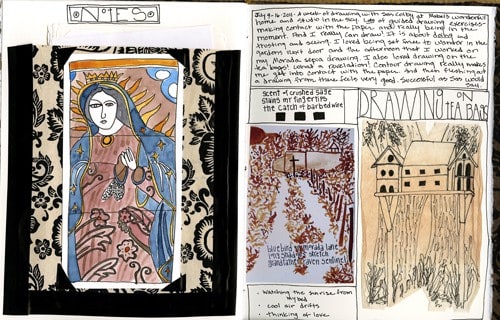 NOTES
July 9-16, 2011 - A week of drawing with San Colby at Mabel's wonderful
home and studio in the sky. Lots of guided drawing exercises-
making contact with the paper and really being in the
moment. And I really can draw! It is about
trusting and seeing. I loved being so free to wander in the
gardens
my Morada sepia drawing. I also loved drawing on the
tea bags! What a revelation! Contour drawing really makes
me get into contact with the paper. And then fleshing out
a drawing from there feels very good. Successful as San would
say.
scent of crushed sage
stains my fingertips
the catch of barbed wire
DRAWING ON
TEA BAGS
bluebird morada lane
long shadows stretch
grandfather raven sentinel
• watching the sunrise from
my bed
• cool air drifts
• thinking of love